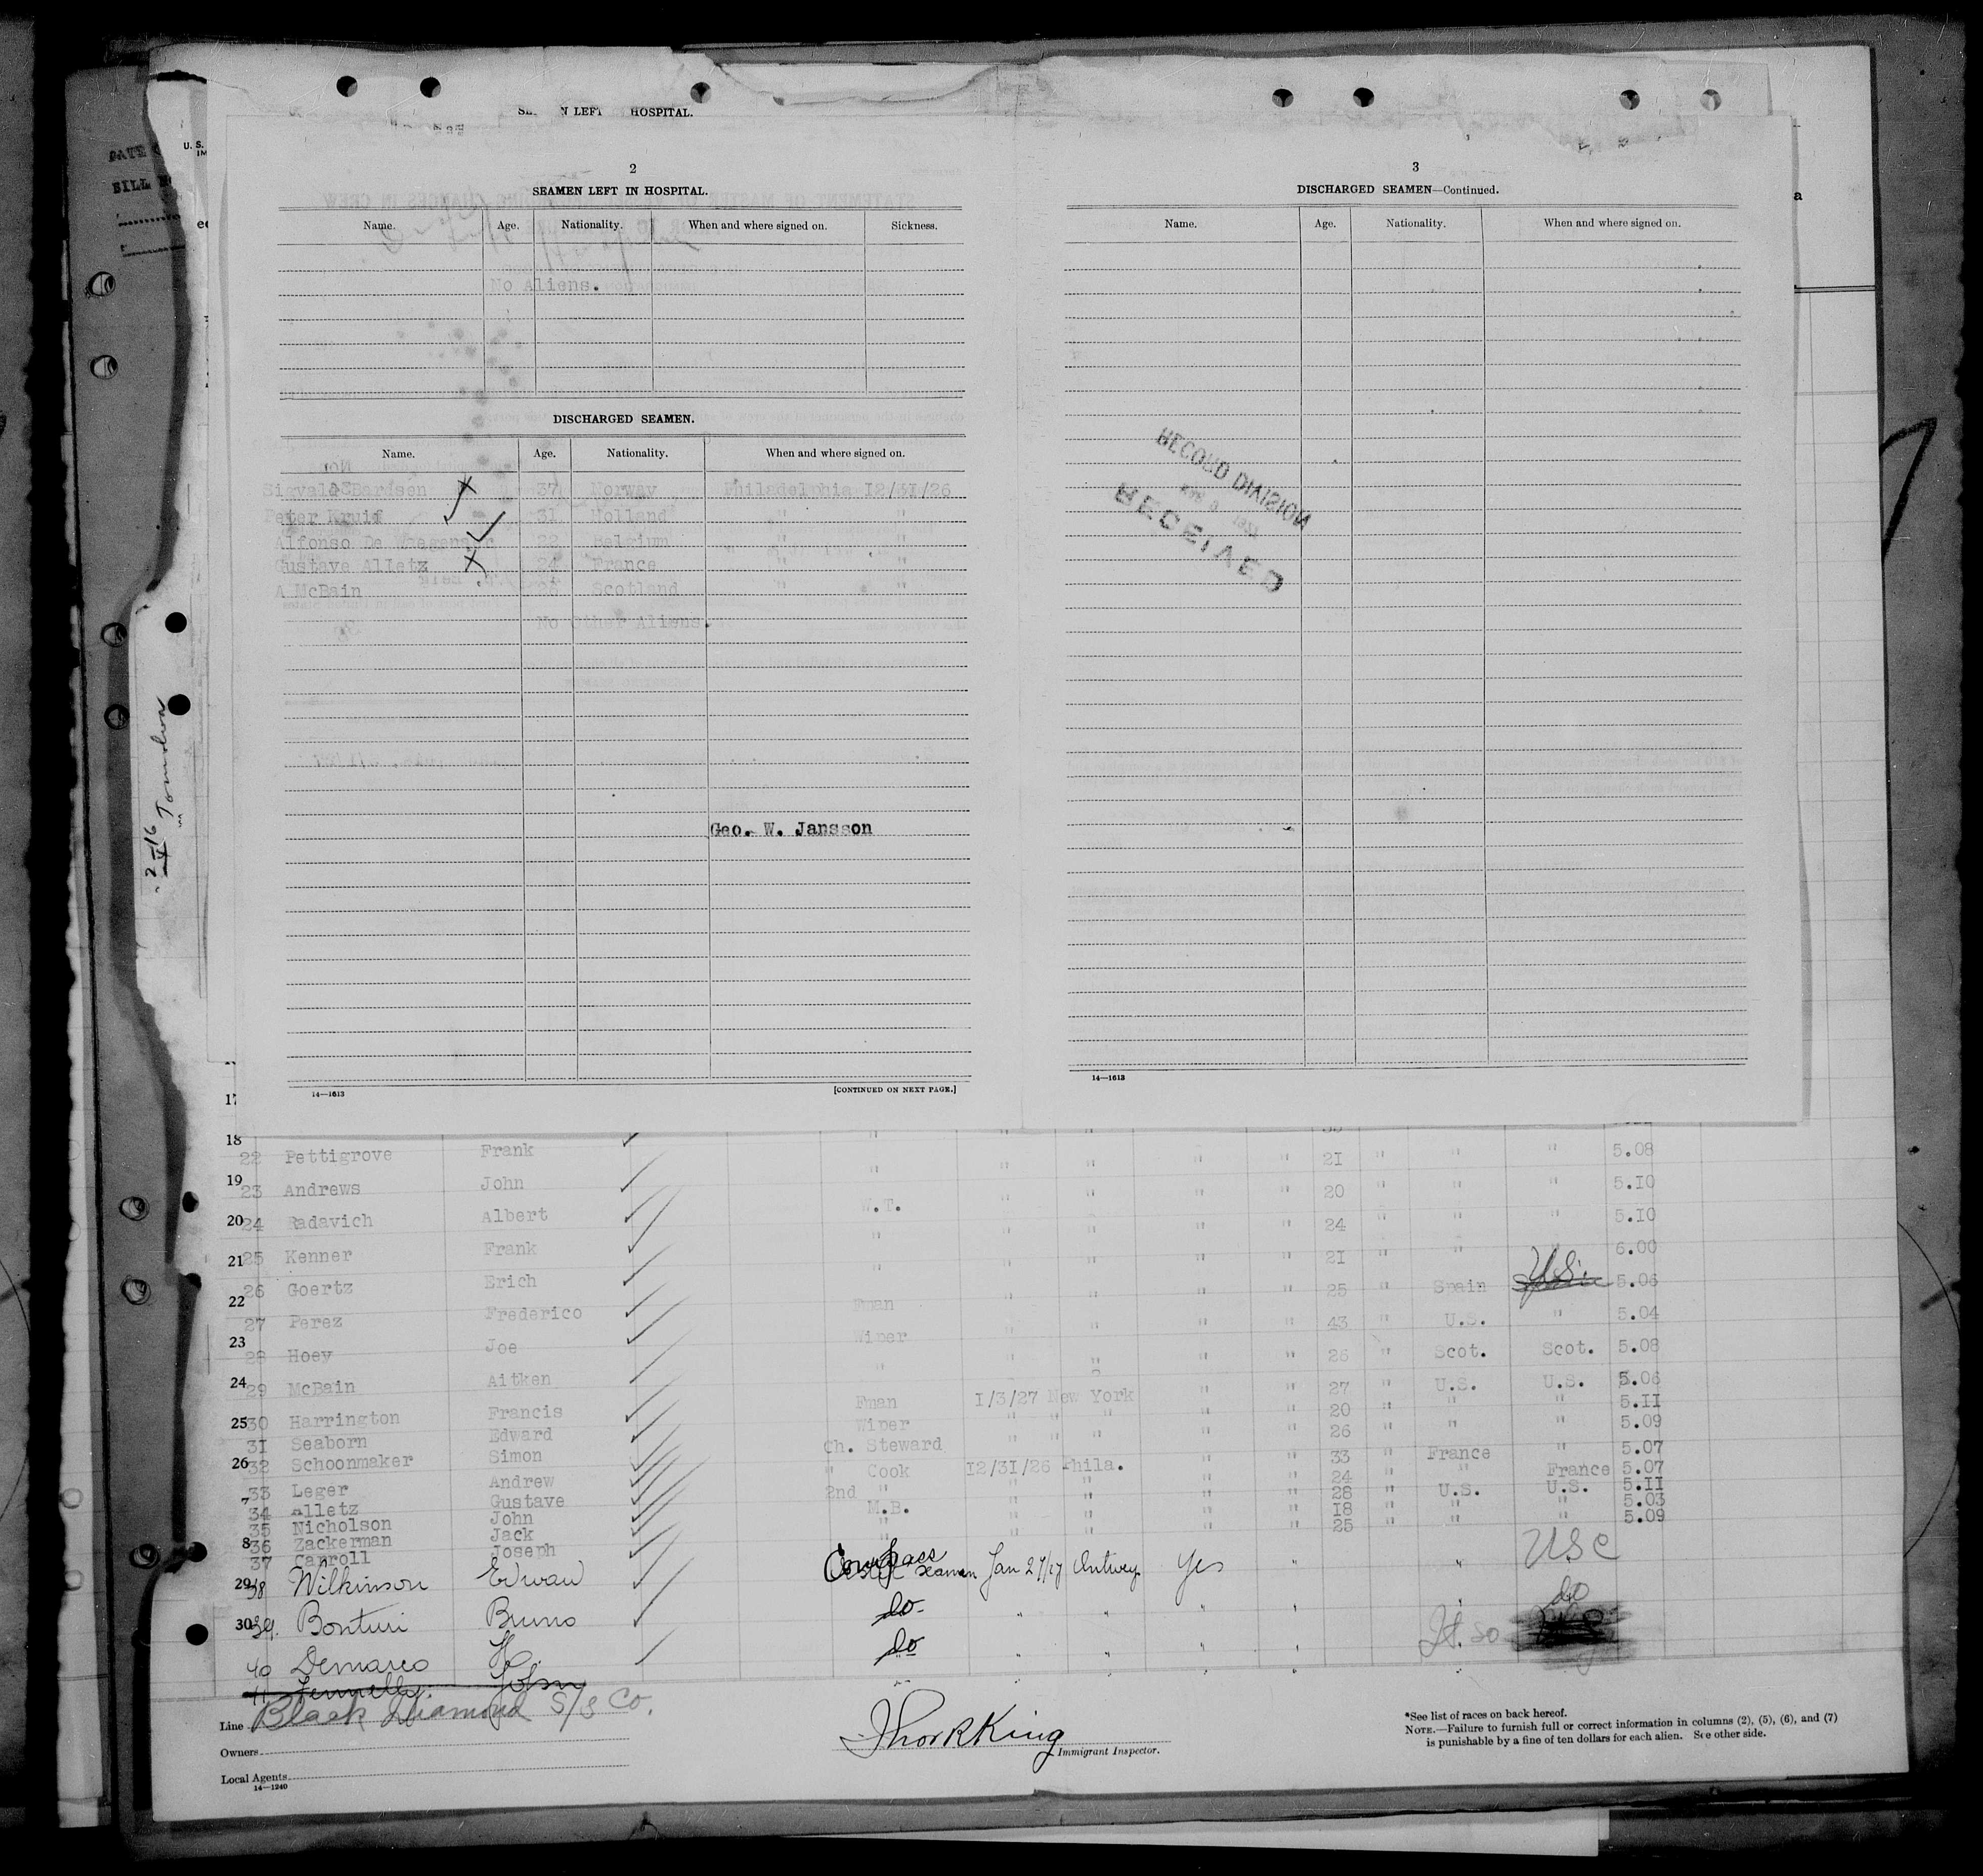 HOSPITAL.
2
SEAMEN LEFT IN HOSPITAL.
Name. Age. Nationality. When and where signed on. Sickness.
No Aliens.
DISCHARGED SEAMEN.
Name. Age. Nationality. When and where signed on.
Bardsen 37 Norway Philadelphia 12/31/26
Peter Kruif 31 Holland " "
Alfonso De 22 Belgium " "
Gustave Alletz 24 France " "
A McBain Scotland " "
No Other Aliens.
Geo. W. Jansson
14—1613 [CONTINUED ON NEXT PAGE.]
3
DISCHARGED SEAMEN—Continued.
Name. Age. Nationality. When and where signed on.
RECORD DIVISION
RECEIVED
14—1613
18
22 Pettigrove Frank " " " " " 21 " " " 5.08
19
23 Andrews John " " " " 20 " " " 5.10
20
24 Radavich Albert W.T. " " " " 24 " " " 5.10
21
25 Kenner Frank " " " " " 21 " " " 6.00
26 Goertz Erich " " " " " 25 " Spain U.S. 5.06
22
27 Perez Frederico Fman " " " " 43 " U.S. " 5.04
23
28 Hoey Joe Wiper " " " " 26 " Scot. Scot. 5.08
24
29 McBain Aitken " " " " " 27 " U.S. U.S. 5.06
25
30 Harrington Francis Fman 1/3/27 New York " " 20 " " " 5.11
31 Seaborn Edward Wiper " " " " " 26 " " " 5.09
26
32 Schoonmaker Simon Ch. Steward " " " " " 33 " France " 5.07
33 Leger Andrew " Cook 12/31/26 Phila. " " 24 " " France 5.07
34 Alletz Gustave 2nd " " " " " 28 " U.S. U.S. 5.11
35 Nicholson John M.B. " " " " 18 " " " 5.03
8
36 Zackerman Jack " " " " " 25 " " " 5.09
37 Carroll Joseph
29
38 Wilkinson Edwau Seaman Jan 27/27 Antwep Yes " " USC
30
39. Bonturi Bruno do " " " " " do
40 Demarco H. do " " " " It. so
41 Fennelly John
Line Black Diamond S/S Co.
Owners
Local Agents
14—1240
Thor R King
Immigrant Inspector.
*See list of races on back hereof.
NOTE.—Failure to furnish full or correct information in columns (2), (5), (6), and (7)
is punishable by a fine of ten dollars for each alien. See other side.